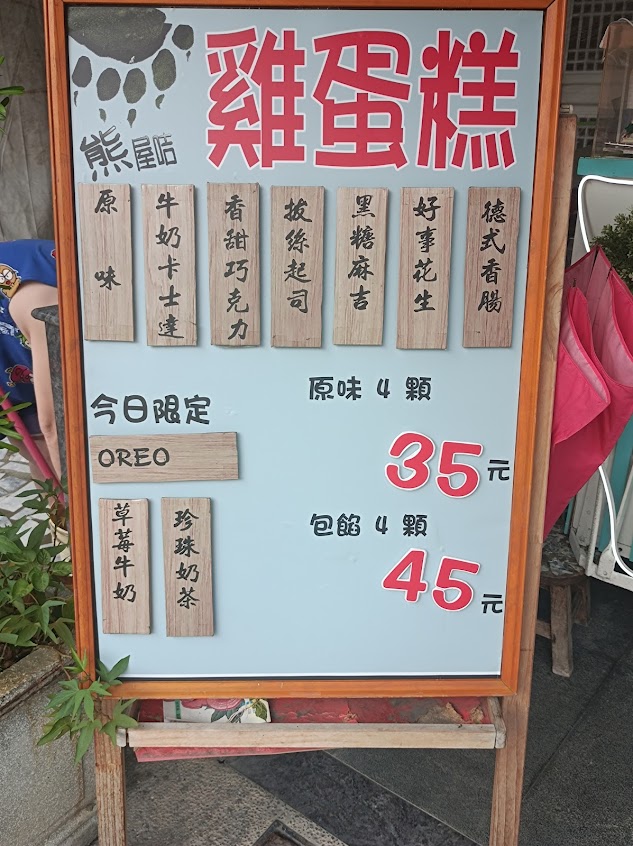 雞蛋糕
熊屋咭
原味
牛奶卡士達
香甜巧克力
拔絲起司
黑糖麻吉
好事花生
德式香腸
原味 4 顆
35元
今日限定
OREO
草莓牛奶
珍珠奶茶
包餡 4 顆
45元